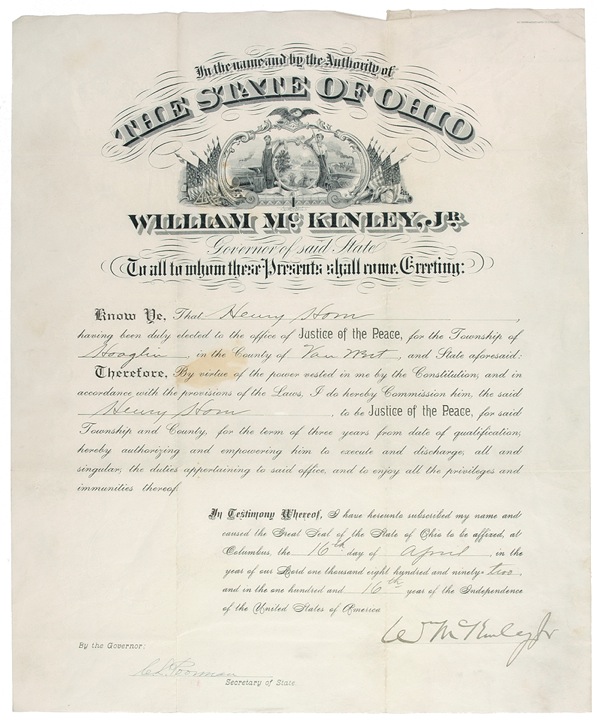 In the name and by the Authority of
THE STATE OF OHIO
WILLIAM McKINLEY, JR.
Governor of said State
To all to whom these Presents shall come, Greeting:
Know Ye, That Henry Horn ,
having been duly elected to the office of Justice of the Peace, for the Township of
Hoaglin , in the County of Van Wert , and State aforesaid:
Therefore, By virtue of the power vested in me by the Constitution, and in
accordance with the provisions of the Laws, I do hereby Commission him, the said
Henry Horn , to be Justice of the Peace, for said
Township and County, for the term of three years from date of qualification,
hereby authorizing and empowering him to execute and discharge, all and
singular, the duties appertaining to said office, and to enjoy all the privileges and
immunities thereof.
In Testimony Whereof, I have hereunto subscribed my name and
caused the Great Seal of the State of Ohio to be affixed, at
Columbus, the 16th day of April , in the
year of our Lord one thousand eight hundred and ninety-two,
and in the one hundred and 16th year of the Independence
of the United States of America
Wm McKinley Jr
By the Governor:
C.L. Poorman
Secretary of State.